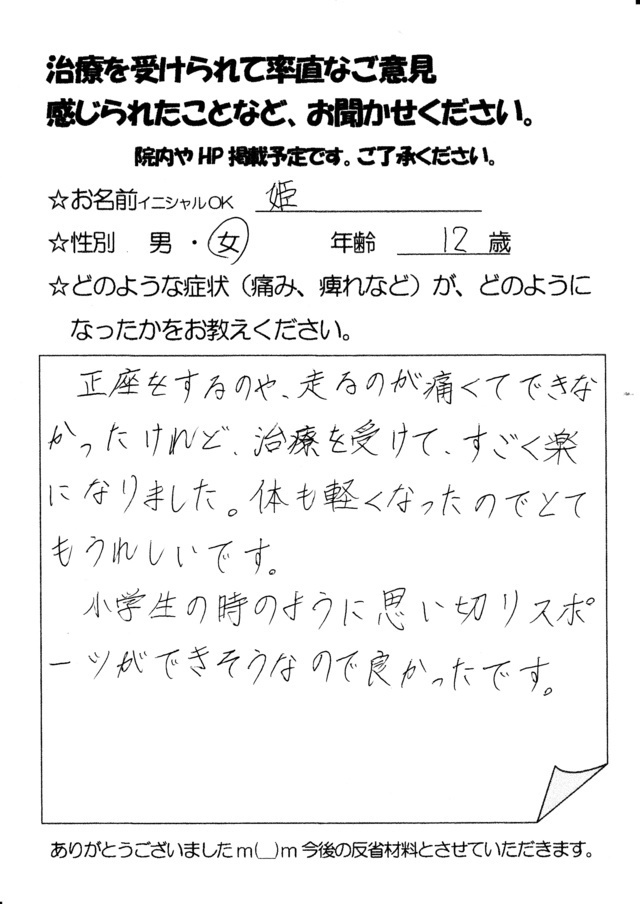 治療を受けられて率直なご意見
感じられたことなど、お聞かせください。
院内やHP掲載予定です。ご了承ください。
☆お名前イニシャルOK 姫
☆性別 男・女 年齢 12 歳
☆どのような症状（痛み、痺れなど）が、どのように
なったかをお教えください。
正座をするのや、走るのが痛くてできな
かったけれど、治療を受けて、すごく楽
になりました。体も軽くなったのでとて
もうれしいです。
小学生の時のように思い切りスポ
ーツができそうなので良かったです。
ありがとうございましたm(__)m今後の反省材料とさせていただきます。